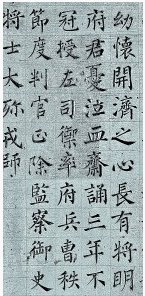 幼懷開濟之心長有將明
府君憂泣血齋誦三年不
冠授左司禦率府兵曹秩
節度判官正除監察御史
將士大弥戎師